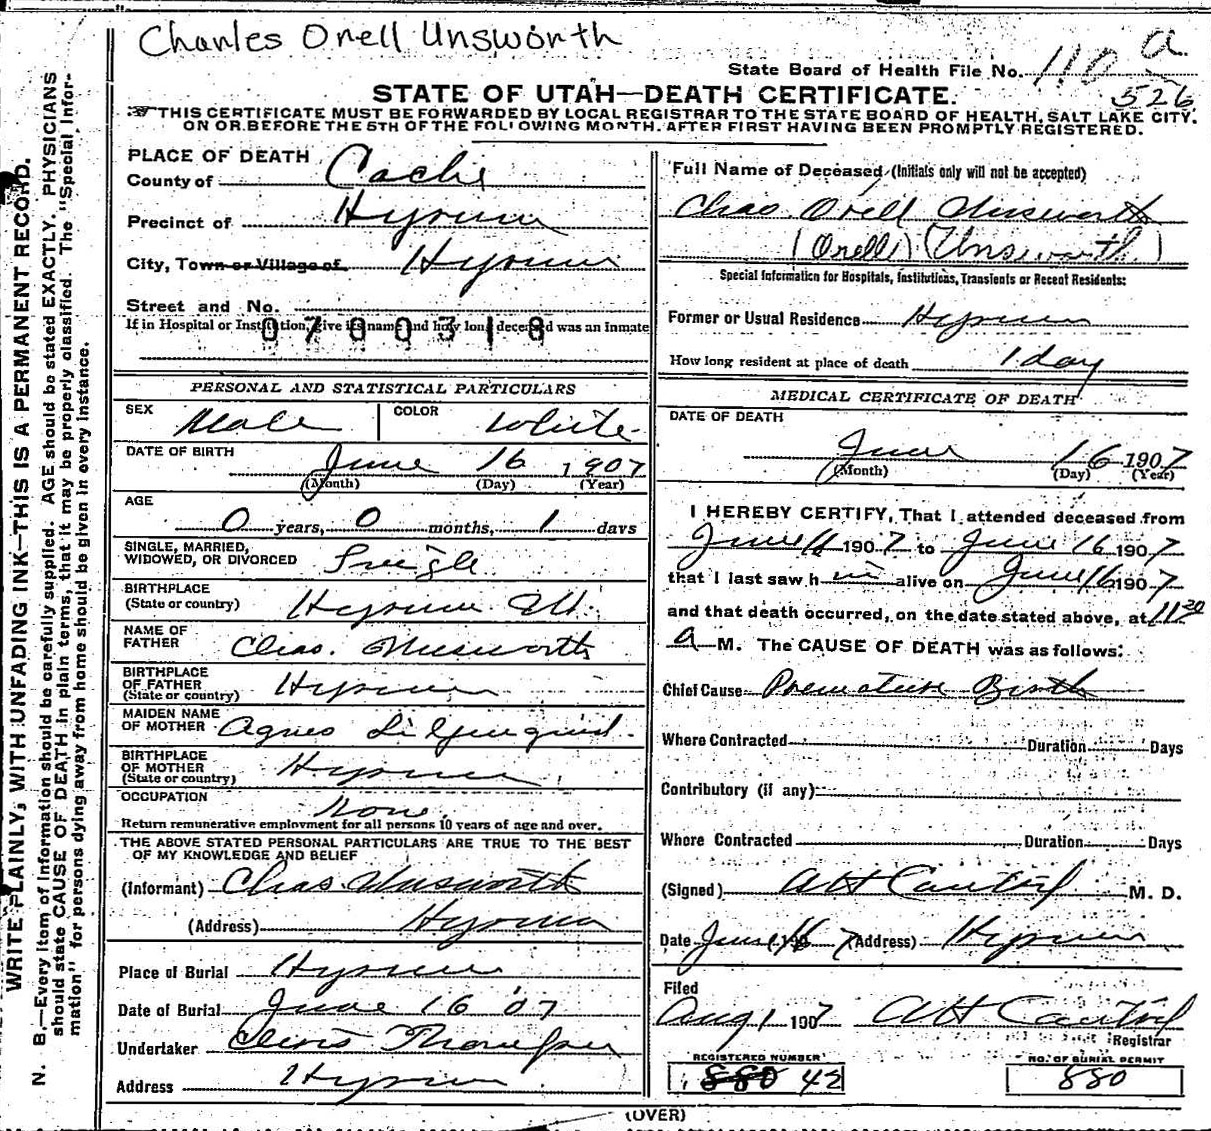 Charles Orell Unsworth
a
State Board of Health File No. 110
526
STATE OF UTAH—DEATH CERTIFICATE.
THIS CERTIFICATE MUST BE FORWARDED BY LOCAL REGISTRAR TO THE STATE BOARD OF HEALTH, SALT LAKE CITY,
ON OR BEFORE THE 5TH OF THE FOLLOWING MONTH. AFTER FIRST HAVING BEEN PROMPTLY REGISTERED.
WRITE PLAINLY, WITH UNFADING INK—THIS IS A PERMANENT RECORD.
N. B.—Every item of Information should be carefully supplied. AGE should be stated EXACTLY. PHYSICIANS
should state CAUSE OF DEATH in plain terms, that it may be properly classified. The "Special Infor-
mation" for persons dying away from home should be given in every instance.
PLACE OF DEATH
County of Cache
Precinct of Hyrum
City, Town or Village of Hyrum
Street and No.
If in Hospital or Institution, give its name and how long deceased was an Inmate
0700318
PERSONAL AND STATISTICAL PARTICULARS
SEX Male COLOR White
DATE OF BIRTH
June 16 1907
(Month) (Day) (Year)
AGE
0 years, 0 months, 1 days
SINGLE, MARRIED,
WIDOWED, OR DIVORCED Single
BIRTHPLACE
(State or country) Hyrum Ut.
NAME OF
FATHER Chas. Unsworth
BIRTHPLACE
OF FATHER
(State or country) Hyrum
MAIDEN NAME
OF MOTHER Agnes
BIRTHPLACE
OF MOTHER
(State or country) Hyrum
OCCUPATION None
Return remunerative employment for all persons 10 years of age and over.
THE ABOVE STATED PERSONAL PARTICULARS ARE TRUE TO THE BEST
OF MY KNOWLEDGE AND BELIEF
(Informant) Chas. Unsworth
(Address) Hyrum
Place of Burial Hyrum
Date of Burial June 16 07
Undertaker
Address Hyrum
Full Name of Deceased (Initials only will not be accepted)
Chas Orell Unsworth
(Orell) (Unsworth)
Special Information for Hospitals, Institutions, Transients or Recent Residents:
Former or Usual Residence Hyrum
How long resident at place of death 1 day
MEDICAL CERTIFICATE OF DEATH
DATE OF DEATH
June 16 1907
(Month) (Day) (Year)
I HEREBY CERTIFY, That I attended deceased from
June 16 1907 to June 16 1907
that I last saw him alive on June 16 1907
and that death occurred, on the date stated above, at 11 20
a M. The CAUSE OF DEATH was as follows:
Chief Cause Premature Birth
Where Contracted Duration Days
Contributory (if any)
Where Contracted Duration Days
(Signed) M. D.
Date June 16 7 (Address) Hyrum
Filed
Aug 1 1907
Registrar
REGISTERED NUMBER
880 42
NO. OF BURIAL PERMIT
880
(OVER)